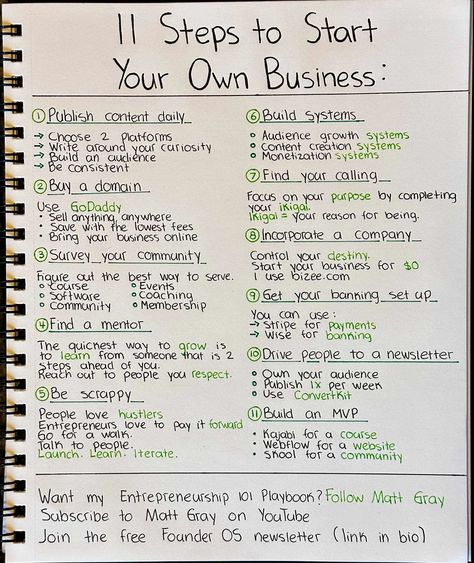 11 Steps to Start
Your Own Business:
① Publish content daily
→ Choose 2 Platforms
→ Write around your curiosity
→ Build an audience
→ Be consistent
② Buy a domain
Use GoDaddy
• Sell anything, anywhere
• Save with the lowest fees
• Bring your business online
③ Survey your community
Figure out the best way to serve.
• Course • Events
• Software • Coaching
• Community • Membership
④ Find a mentor
The quickest way to grow is
to learn from someone that is 2
steps ahead of you.
Reach out to people you respect.
⑤ Be scrappy
People love hustlers
Entrepreneurs love to pay it forward
Go for a walk.
Talk to people.
Launch. Learn. Iterate.
⑥ Build systems
• Audience growth systems
• Content creation systems
• Monetization systems
⑦ Find your calling
Focus on your purpose by completing
your ikigai.
Ikigai = your reason for being.
⑧ Incorporate a company
Control your destiny.
Start your business for $0
I use bizee.com
⑨ Get your banking set up
You can use:
→ Stripe for payments
→ Wise for banking
⑩ Drive people to a newsletter
• Own your audience
• Publish 1x per week
• Use ConvertKit
⑪ Build an MVP
• Kajabi for a course
• Webflow for a website
• Skool for a community
Want my Entrepreneurship 101 Playbook? Follow Matt Gray
Subscribe to Matt Gray on YouTube
Join the free Founder OS newsletter (link in bio)